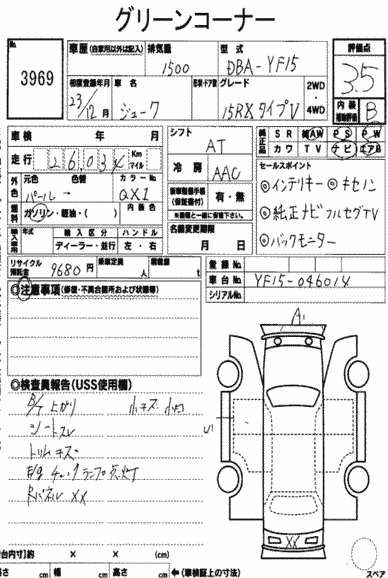 グリーンコーナー
No. 3969
車歴 (自家用以外は記入) 排気量 1500 型式 DBA-YF15 評価点 3.5
初度登録年月 23/12月 車名 ジューク 形状・ドア数 グレード 15RXタイプV 2WD・4WD 内装補助評価 B
車検 年 月 シフト AT 純正品 SR 純AW PS PW
走行 26034 Km マイル 冷房 AAC カワ TV ナビ エアB
外色 元色 パール→ 色替 カラーNo. QX1 内装色
燃料 ガソリン・軽油・( )
新車整備手帳(保証書付) 有・無
※現車と一緒にご提示下さい。
セールスポイント
◎インテリキー ◎キセノン
◎純正ナビフルセグTV
◎バックモニター
輸入車 年式 輸入区分 ディーラー・並行 ハンドル 左・右
名義変更期限 月 日
リサイクル預託金 9680円 乗車定員 人 積載量 t
登録No.
車台No. YF15-046014
シリアルNo.
◎注意事項(修復・不具合箇所および状態等)
A
◎検査員報告(USS使用欄)
小キズ 小凹
シートスレ
S
トリムキズ
E/g チェックランプ点灯
Rパネル XX
XX
荷台内寸)約 × × (cm)
長さ cm 幅 cm 高さ cm ←(車検証上の寸法) スペア